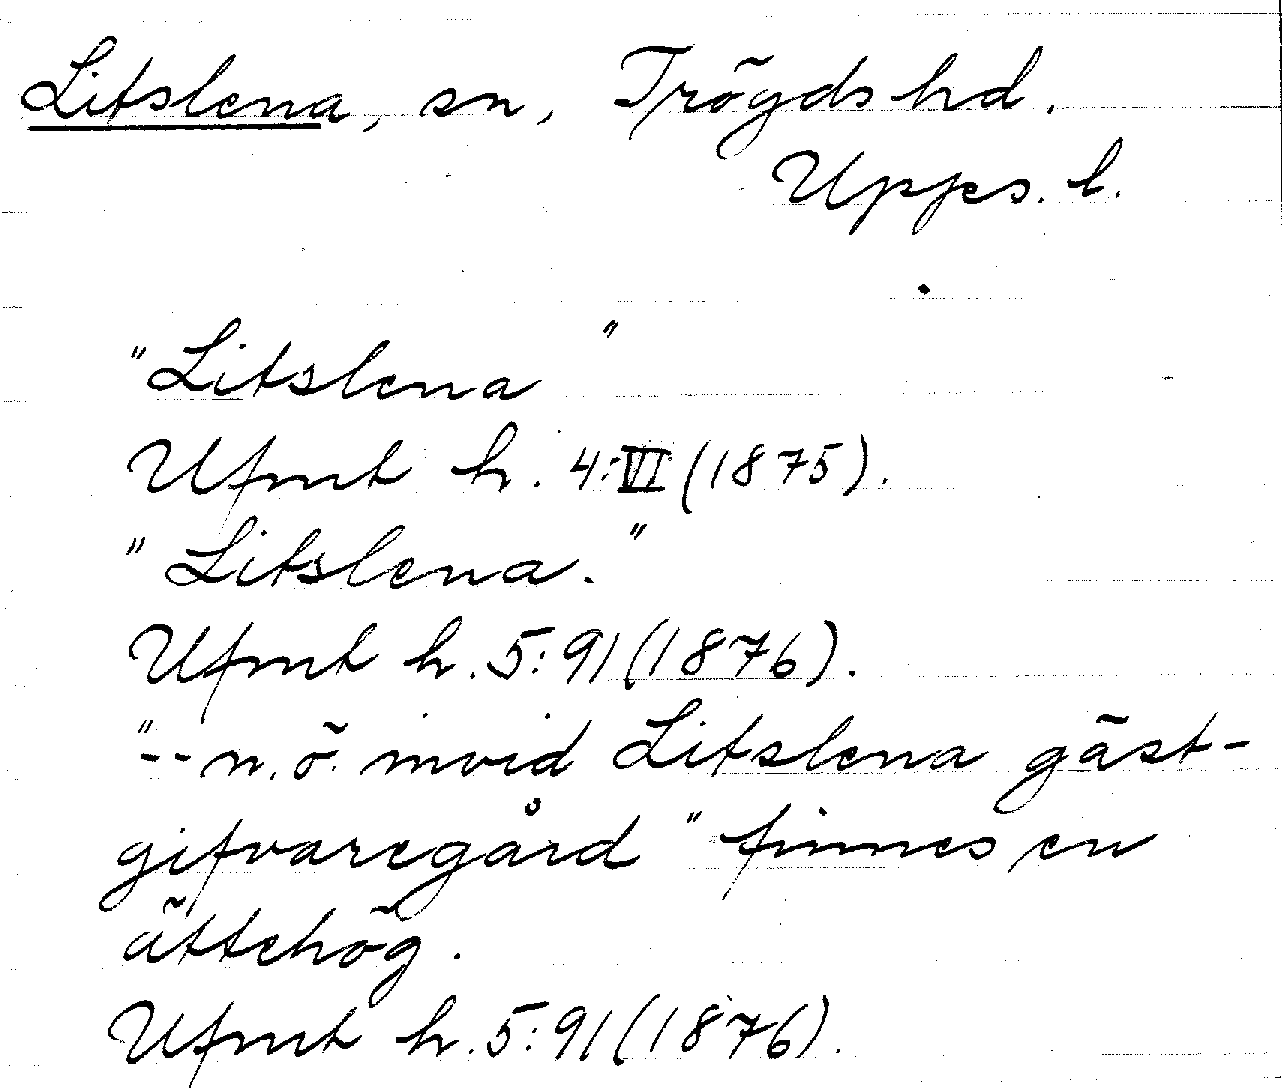 Litslena, sn, Trögds hd.
Upps. l.
"Litslena"
Ufmt h. 4:VI (1875).
"Litslena."
Ufmt h. 5:91 (1876).
"--n.ö. invid Litslena gäst-
gifvaregård" finnes en
ättehög.
Ufmt h. 5:91 (1876).